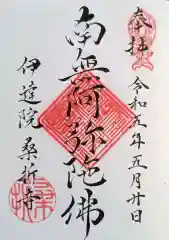 奉拝
令和元年五月廿日
南無阿弥陀佛
伊達院
桑折寺